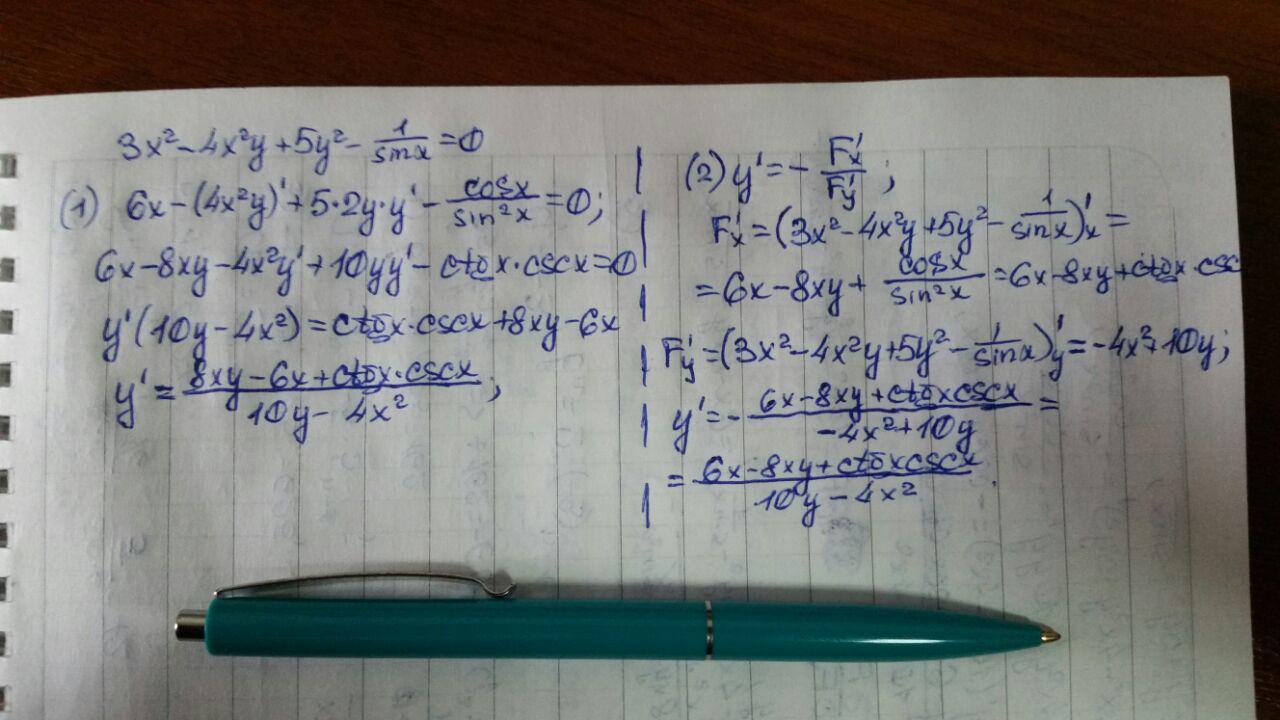 3x²-4x²y+5y²-1/sinx=0
(1) 6x-(4x²y)'+5·2y·y'-cosx/sin²x=0;
6x-8xy-4x²y'+10yy'-ctgx·cscx=0
y'(10y-4x²)=ctgx·cscx+8xy-6x
y'=(8xy-6x+ctgx·cscx)/(10y-4x²);
(2) y'=-F'x/F'y;
F'x=(3x²-4x²y+5y²-1/sinx)'x=
=6x-8xy+cosx/sin²x=6x-8xy+ctgx·csc
F'y=(3x²-4x²y+5y²-1/sinx)'y=-4x²+10y;
y'=-(6x-8xy+ctgxcscx)/(-4x²+10y)=
=(6x-8xy+ctgxcscx)/(10y-4x²).